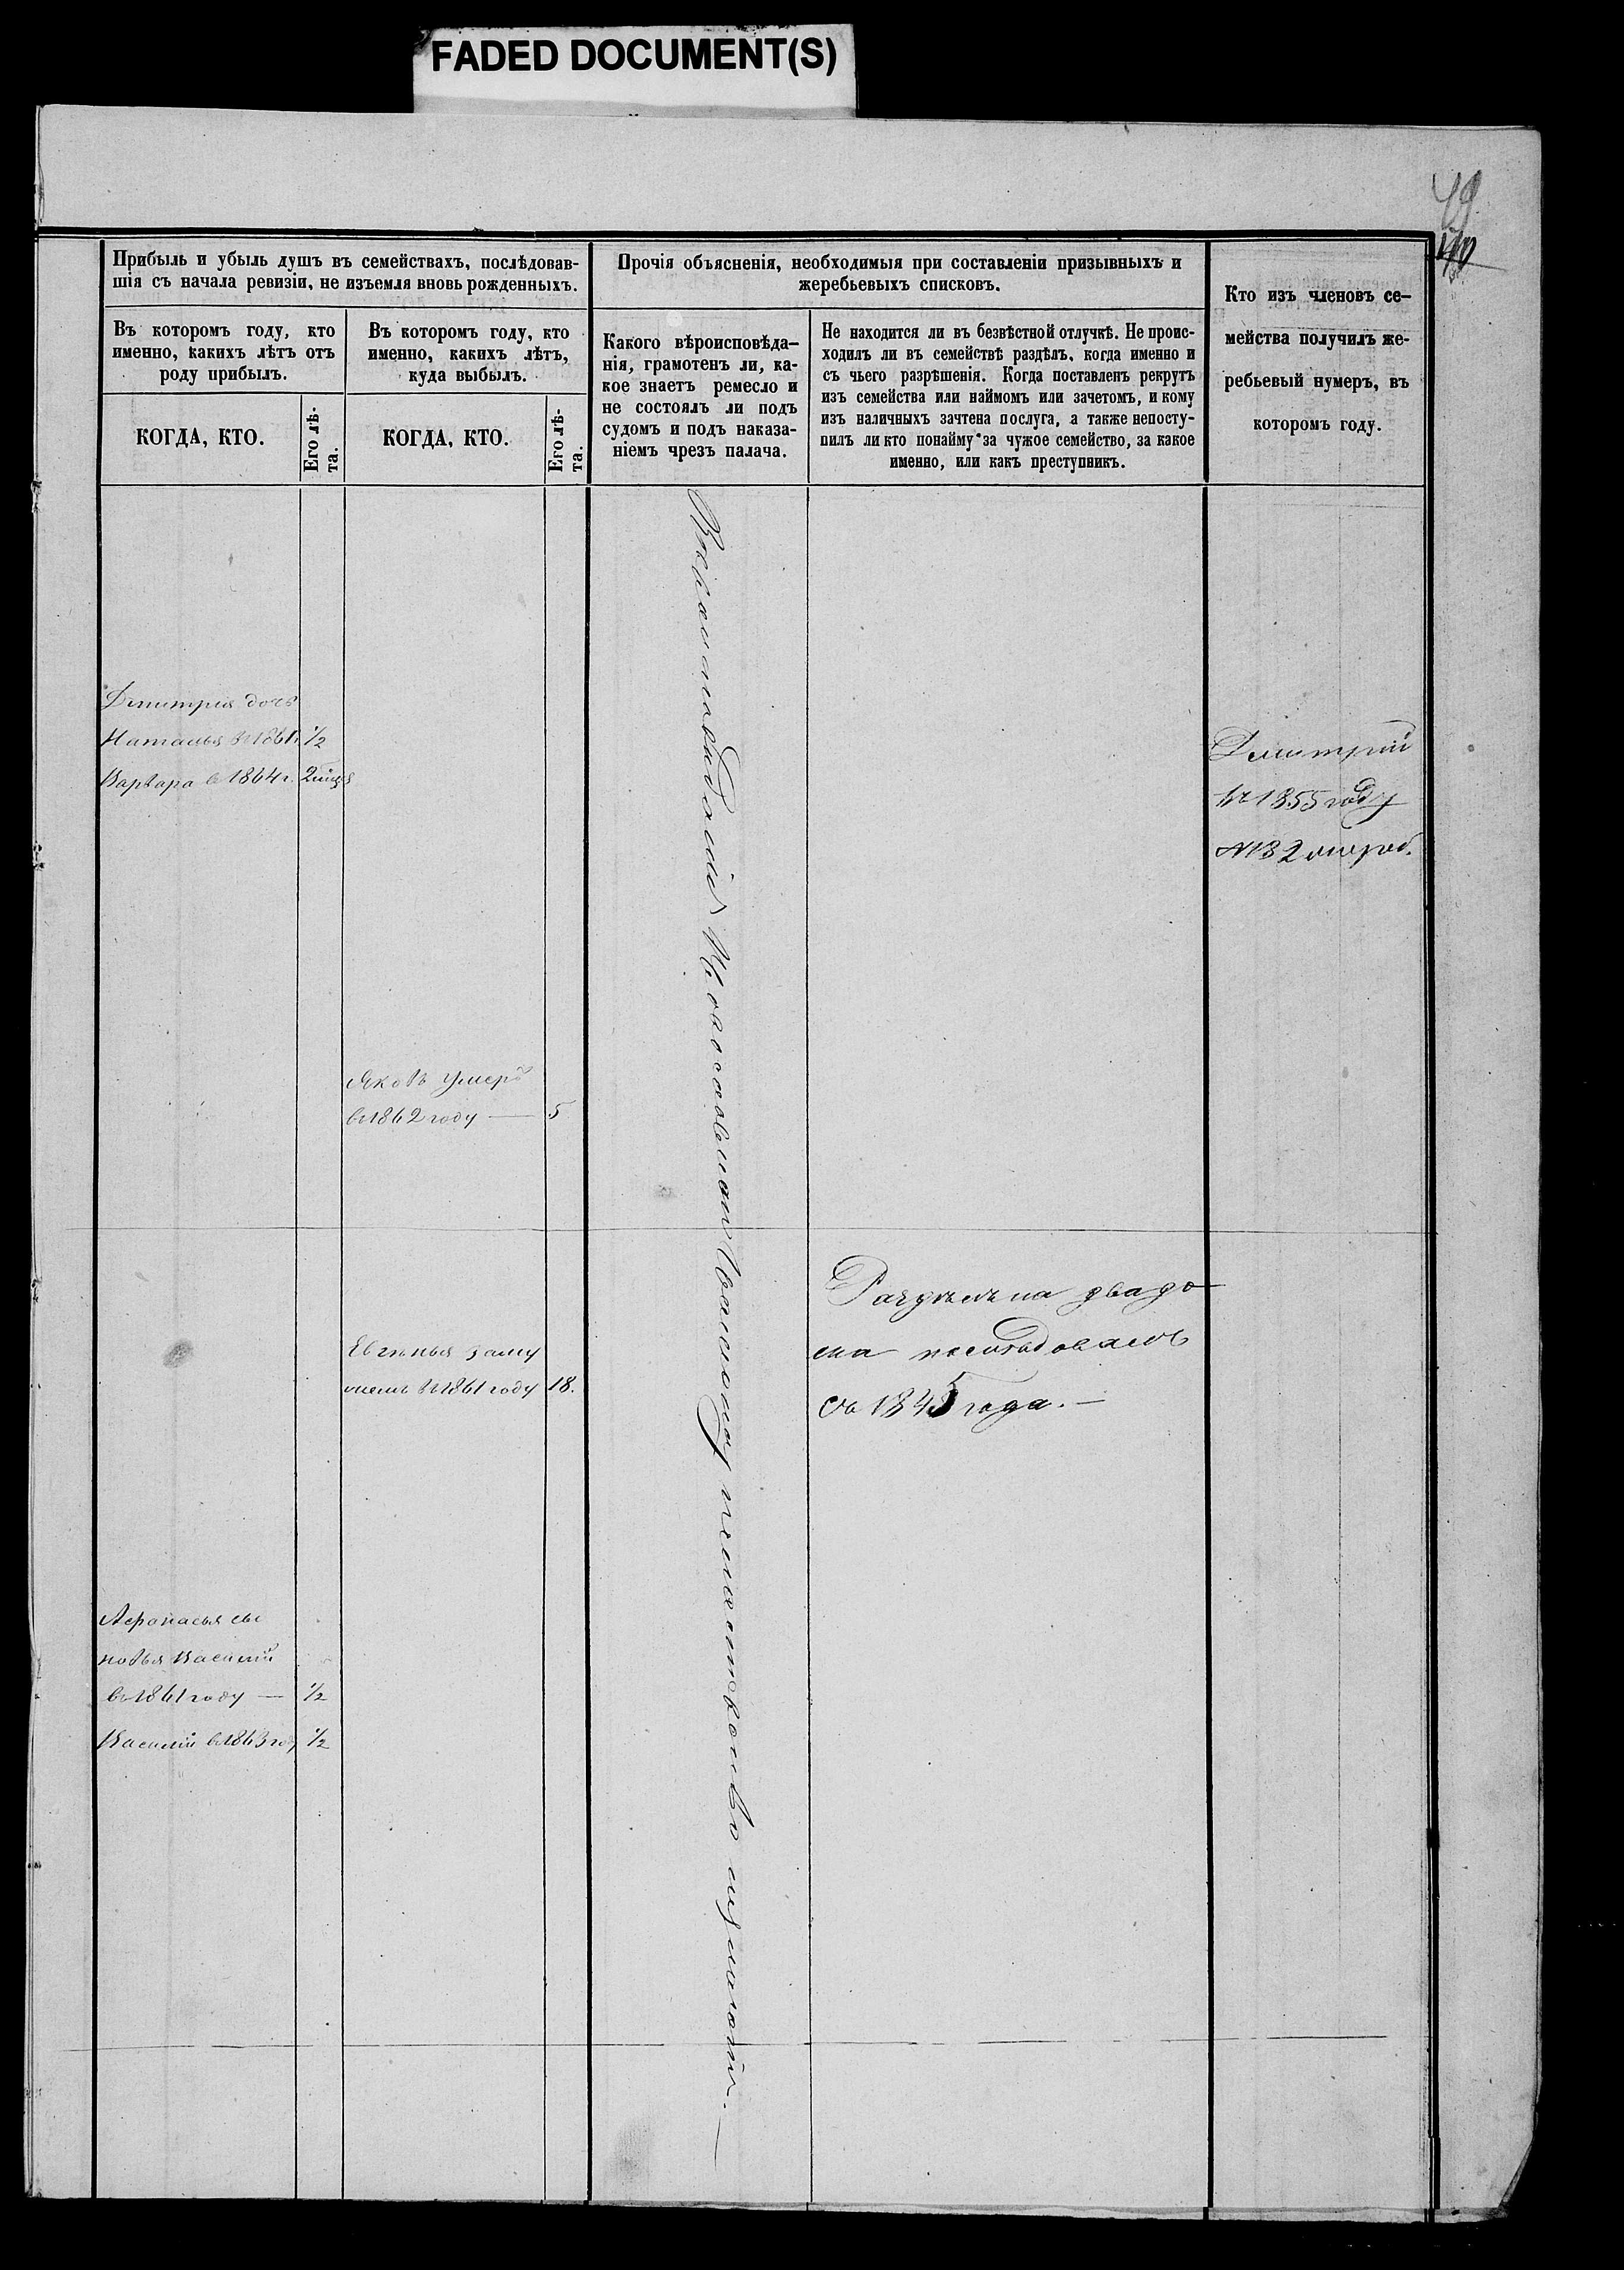 FADED DOCUMENT(S)
49
Прибыль и убыль душъ въ семействахъ, послѣдовав-
шія съ начала ревизіи, не изъемля вновь рожденныхъ.
Въ которомъ году, кто
именно, какихъ лѣтъ отъ
роду прибылъ.
КОГДА, КТО.
Его лѣ-
та.
Въ которомъ году, кто
именно, какихъ лѣтъ,
куда выбылъ.
КОГДА, КТО.
Его лѣ-
та.
Прочія объясненія, необходимыя при составленіи призывныхъ и
жеребьевыхъ списковъ.
Какого вѣроисповѣда-
нія, грамотенъ ли, ка-
кое знаетъ ремесло и
не состоялъ ли подъ
судомъ и подъ наказа-
ніемъ чрезъ палача.
Не находится ли въ безвѣстной отлучкѣ. Не проис-
ходилъ ли въ семействѣ раздѣлъ, когда именно и
съ чьего разрѣшенія. Когда поставленъ рекрутъ
изъ семейства или наймомъ или зачетомъ, и кому
изъ наличныхъ зачтена послуга, а также непосту-
пилъ ли кто понайму за чужое семейство, за какое
именно, или какъ преступникъ.
Кто изъ членовъ се-
мейства получилъ же-
ребьевый нумеръ, въ
которомъ году.
Дмитрия дочь
Наталья въ 1861 г. 1/2
Варвара въ 1864 г.
Яковъ умеръ
въ 1862 году — 5
Евгенья заму
жемъ въ 1861 году 18.
Афонасья сы
новья Василій
въ 1861 году — 1/2
Василій въ 1863 году 1/2
Раздѣлъ на два до
ма послѣдовалъ
съ 1845 года. —
Дмитрій
въ 1855 году
№ 132